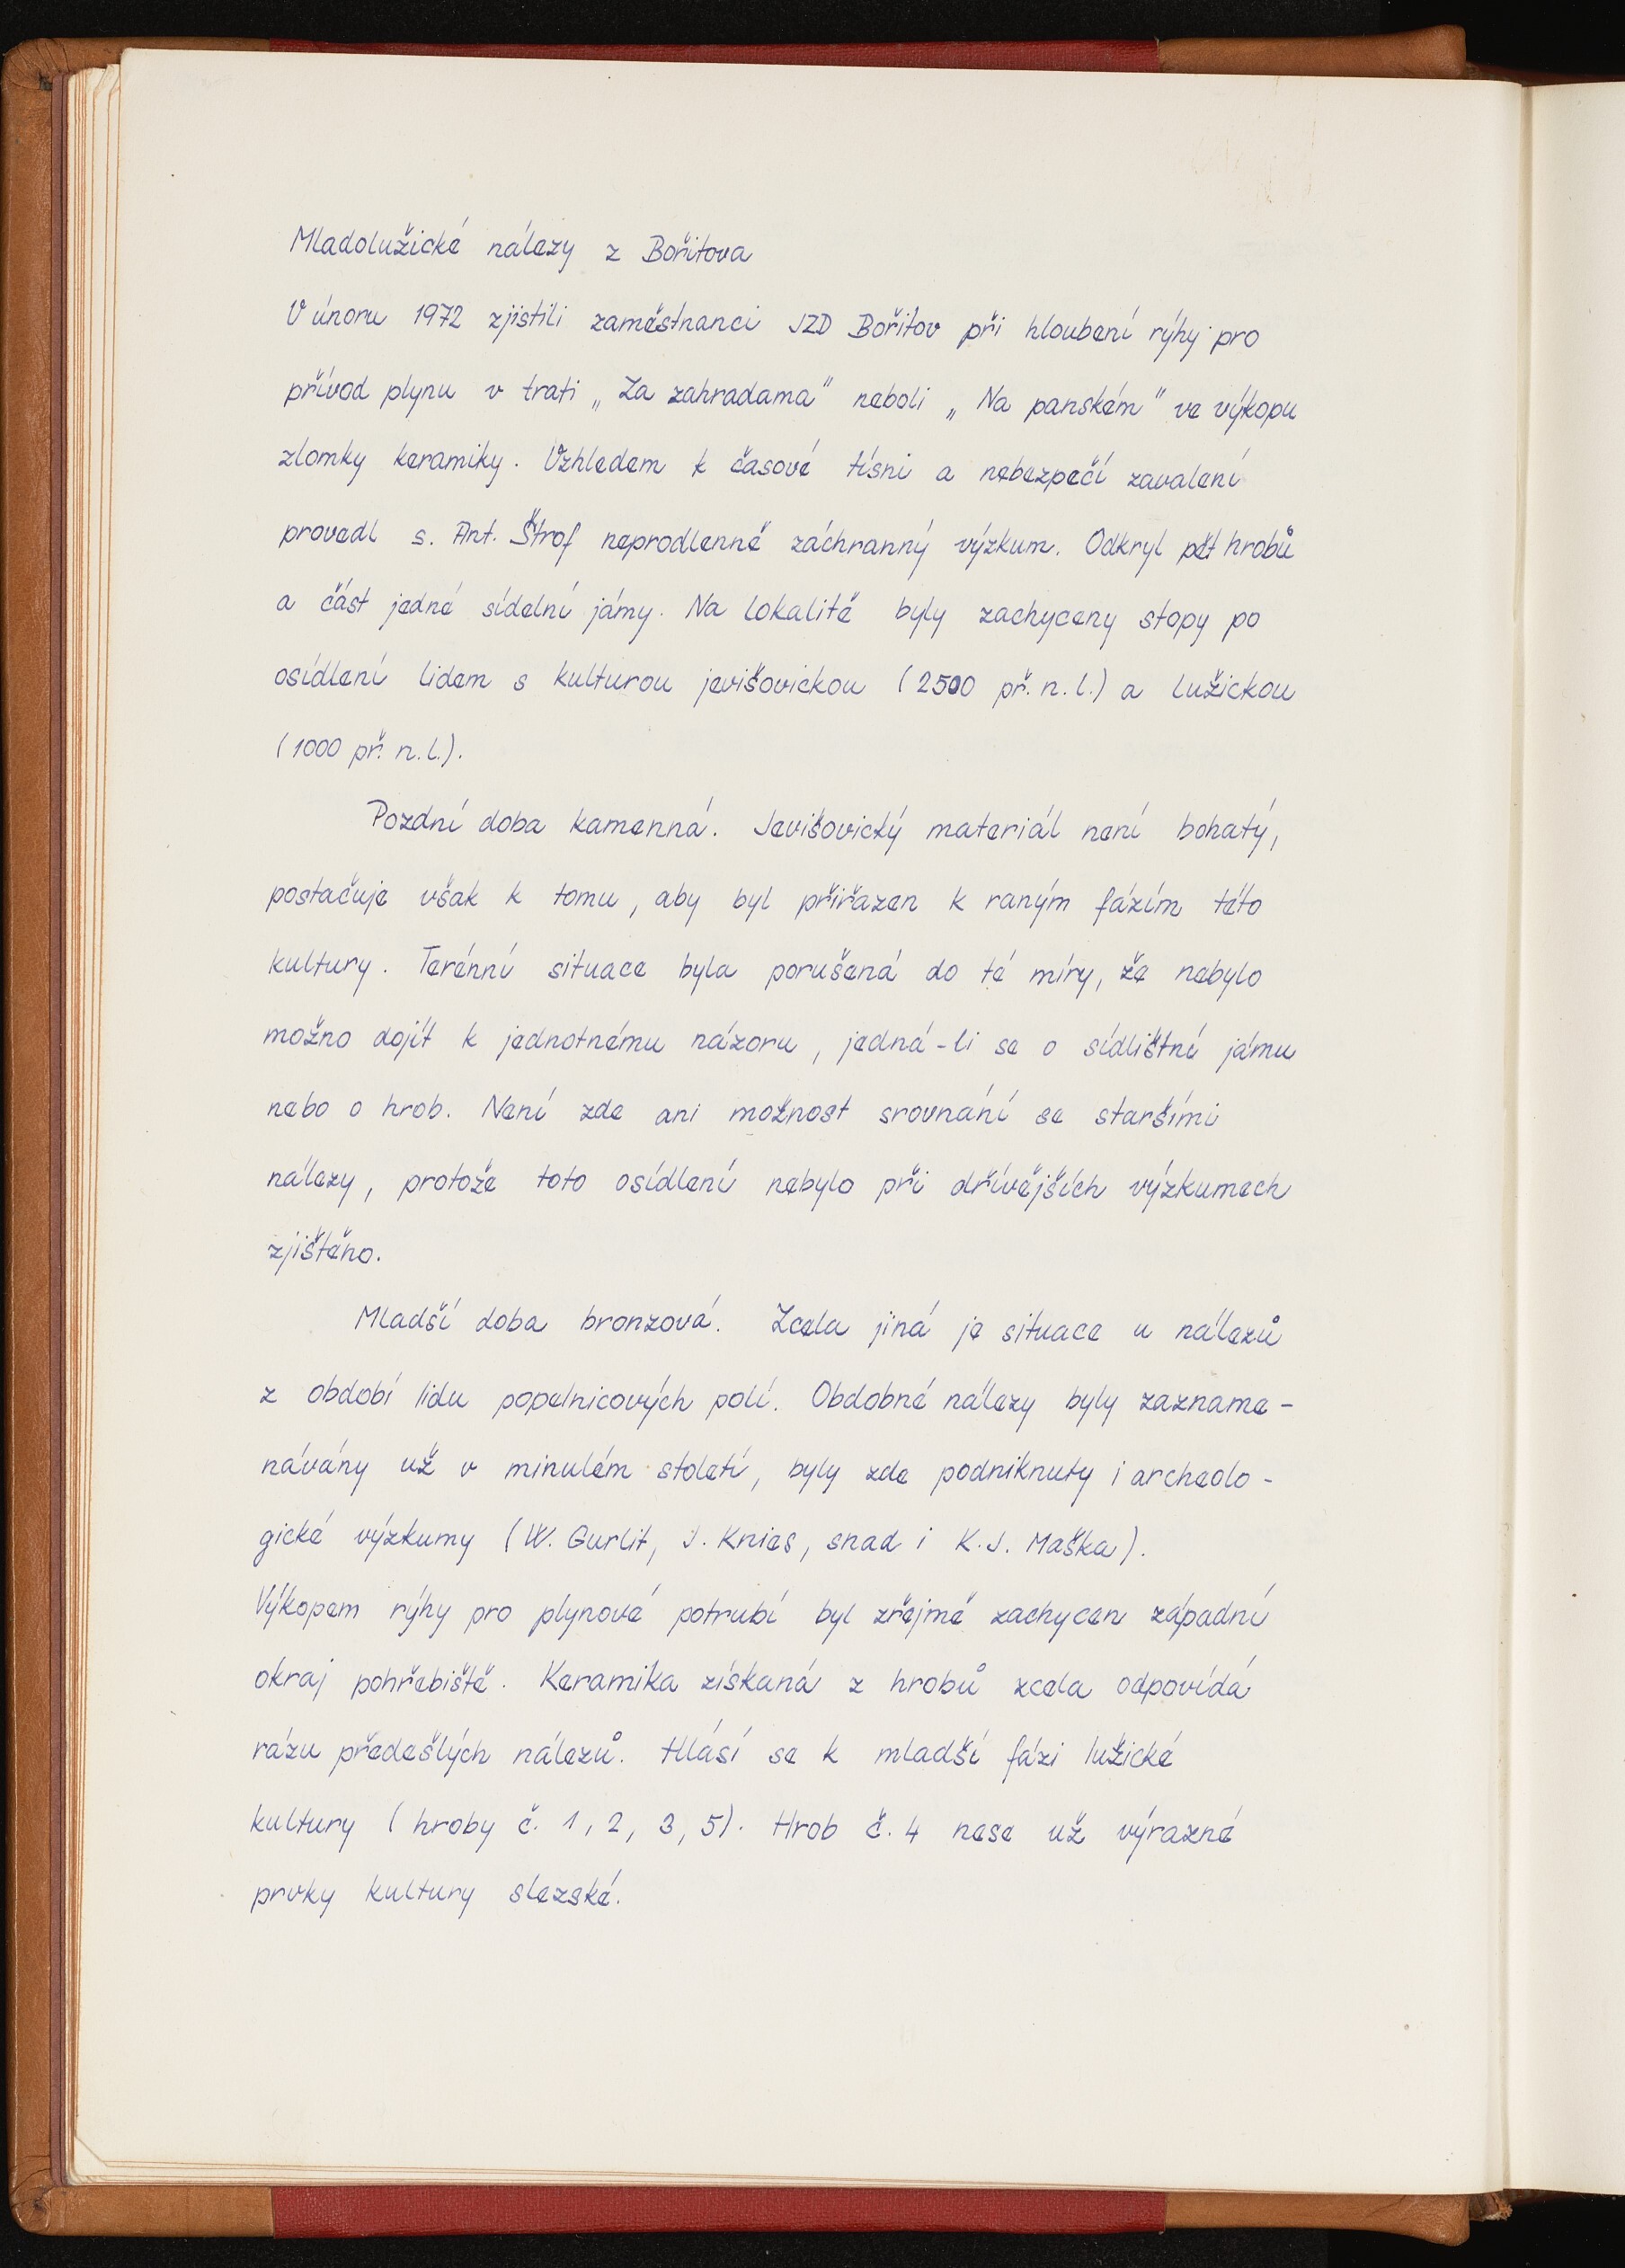 Mladolužické nálezy z Bořitova
V únoru 1972 zjistili zaměstnanci JZD Bořitov při hloubení rýhy pro
přívod plynu v trati „Za zahradama" neboli „Na panském" ve výkopu
zlomky keramiky. Vzhledem k časové tísni a nebezpečí zavalení
provedl s. Ant. Štrof neprodlenně záchranný výzkum. Odkryl pět hrobů
a část jedné sídelní jámy. Na lokalitě byly zachyceny stopy po
osídlení lidem s kulturou jevišovickou (2500 př. n. l.) a lužickou
(1000 př. n. l.).
Pozdní doba kamenná. Jevišovický materiál není bohatý,
postačuje však k tomu, aby byl přiřazen k raným fázím této
kultury. Terénní situace byla porušená do té míry, že nebylo
možno dojít k jednotnému názoru, jedná-li se o sídlištní jámu
nebo o hrob. Není zde ani možnost srovnání se staršími
nálezy, protože toto osídlení nebylo při dřívějších výzkumech
zjištěno.
Mladší doba bronzová. Zcela jiná je situace u nálezů
z období lidu popelnicových polí. Obdobné nálezy byly zazname-
návány už v minulém století, byly zde podniknuty i archeolo-
gické výzkumy (W. Gurlit, J. Knies, snad i K. J. Maška).
Výkopem rýhy pro plynové potrubí byl zřejmě zachycen západní
okraj pohřebiště. Keramika získaná z hrobů zcela odpovídá
rázu předešlých nálezů. Hlásí se k mladší fázi lužické
kultury (hroby č. 1, 2, 3, 5). Hrob č. 4 nese už výrazné
prvky kultury slezské.